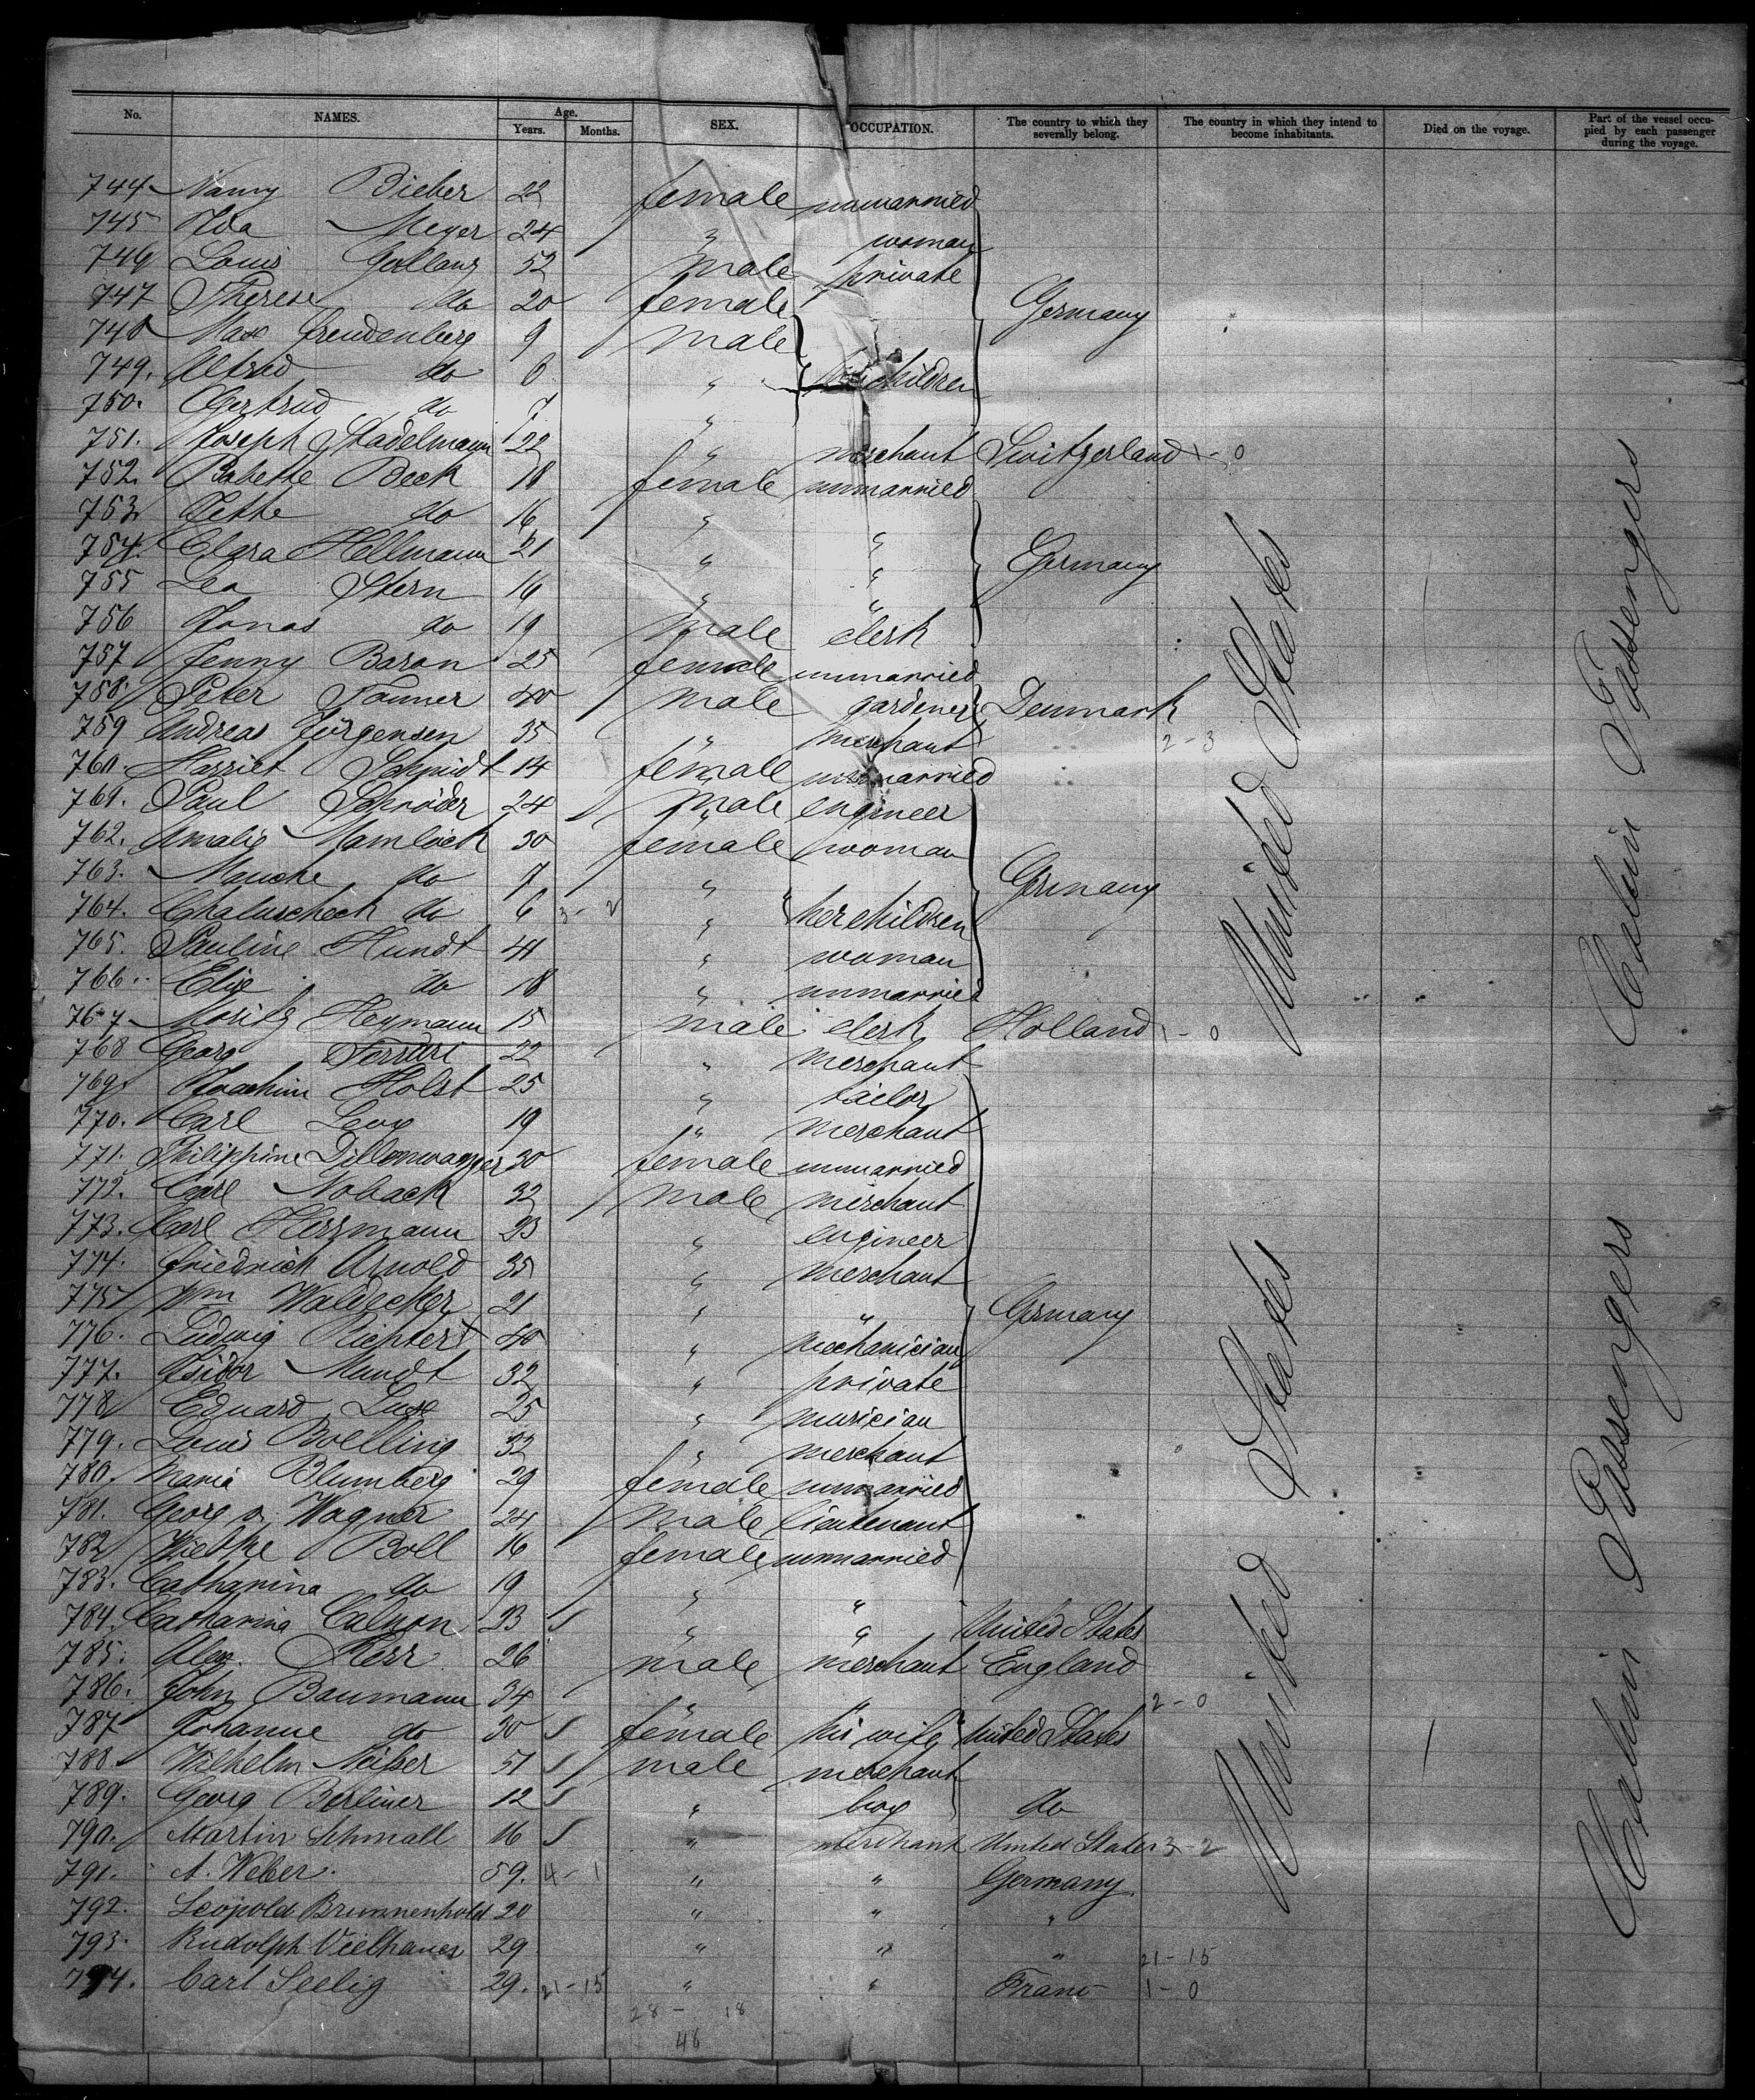 No. NAMES. Age. Years. Months. SEX. OCCUPATION. The country to which they severally belong. The country in which they intend to become inhabitants. Died on the voyage. Part of the vessel occupied by each passenger during the voyage.
744 Nanny Bieber 22 female unmarried
745 Ida Meyer 24 " woman
746 Louis Gollanz 52 male private
747 Therese do 20 female Germany
748 Max Freudenberg 9 male
749. Alfred do 8 " children
750. Gertrud do 7 "
751. Joseph Stadelmann 22 " merchant Switzerland 1-0
752. Babette Beck 18 female unmarried
753. Jethe do 16 " "
754. Clara Hellmann 21 " " Germany
755 Lea Stern 16 " "
756 Jonas do 19 male clerk
757 Jenny Baron 25 female unmarried
758. Peter 40 male gardener Denmark
759 Andreas Jörgensen 35 " merchant 2-3
760. Harriet Schmidt 14 female unmarried
761. Paul Schröder 24 male engineer
762. Amalie Mamlock 30 female woman
763. do 7 " Germany
764. Chaluscheck do 6 3-2 " her children
765. Pauline Hundt 41 " woman
766. Elise do 18 " unmarried
767 Moritz Heymann 15 male clerk Holland 1-0
768 Georg 22 " merchant
769 Joachim Holst 25 " tailor
770. Carl Levy 19 " merchant
771. Philippine Dillenwanger 30 female unmarried
772. Carl Noback 32 male merchant
773. Carl Herzmann 23 " engineer
774. Friedrich Arnold 35 " merchant
775 Wm Waldecker 21 " " Germany
776. Ludwig Richter 40 " mechanician
777. Isidor Mundt 32 " private
778 Eduard Luxe 25 " musician
779. Louis Boelling 32 " merchant
780. Maria Blumberg 29 female unmarried
781. Georg v. Wagner 24 male lieutenant
782 Wiebke Boll 16 female unmarried
783. Catharina do 19 " "
784. Catharina Calnon 23 " " United States
785. Alex. Kerr 26 male merchant England
786. John Baumann 34 " " 2-0
787 Johanne do 30 female his wife United States
788. Wilhelm Neisser 51 male merchant
789. Georg Berliner 12 " boy do
790. Martin Schmall 16 " merchant United States 3-2
791. A. Weber. 59. 4-1 " " Germany
792. Leopold Brunnenhold 20 " " "
793. Rudolph Vielhauer 29 " " " 21-15
794. Carl Seelig 29. 21-15 " " 1-0
28 - 18
46
United States
United States
United States
Cabin Passengers
Cabin Passengers